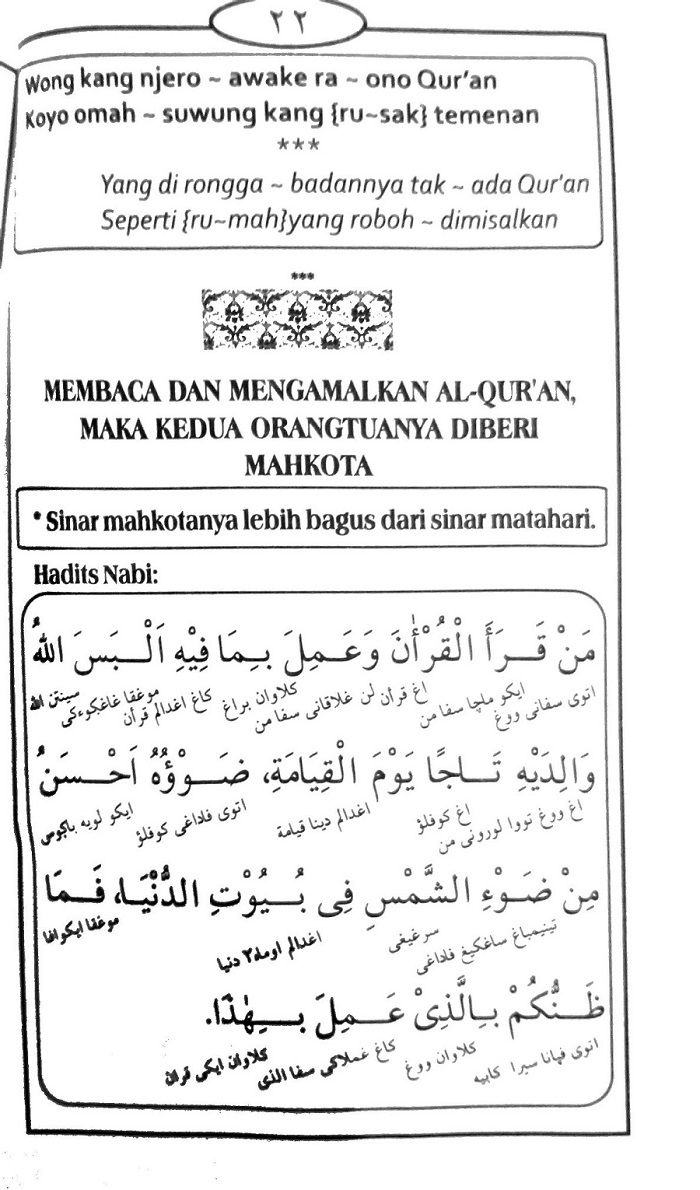 ٢٢
Wong kang njero ~ awake ra ~ ono Qur'an
Koyo omah ~ suwung kang {ru~sak} temenan
***
Yang di rongga ~ badannya tak ~ ada Qur'an
Seperti {ru~mah}yang roboh ~ dimisalkan
***
MEMBACA DAN MENGAMALKAN AL-QUR'AN,
MAKA KEDUA ORANGTUANYA DIBERI
MAHKOTA
* Sinar mahkotanya lebih bagus dari sinar matahari.
Hadits Nabi:
مَنْ قَـرَأَ الْقُرْأٰنَ وَعَـمِلَ بِـمَا فِيْهِ اَلْـبَسَ اللهُ
اتوى سفانى ووڠ ايكو ماچا سفا من اڠ قرأن لن ڠلاقانى سفا من كلاوان براڠ كاڠ اڠدالم قرأن موڠڬا ڠاڠڬوءكى سينتن الله
وَالِدَيْهِ تَـاجًا يَوْمَ الْقِيَامَةِ، ضَـوْؤُهُ اَحْـسَنُ
اڠ ووڠ تووا لورونى من اڠ كوفلؤ اڠدالم دينا قيامة اتوى فاداڠى كوفلؤ ايكو لويه باكوس
مِنْ ضَـوْءِ الشَّمْسِ فِى بُـيُوْتِ الدُّنْيَا، فَـمَا
تينيمباڠ ساڠكيڠ فاداڠى سرڠيڠى اڠدالم اومه٢ دنيا موڠڬا ايكو افا
ظَـنُّكُمْ بِـالَّذِىْ عَـمِلَ بِـهٰذَا.
اتوى فيانا سيرا كابيه كلاوان ووڠ كاڠ عملاكى سفا الذى كلاوان ايكى قرأن